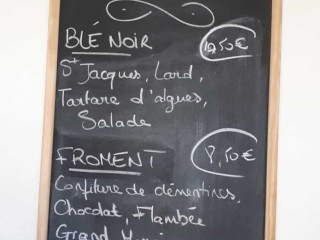 BLÉ NOIR
St Jacques, Lard,
Tartare d'algues,
Salade
FROMENT 8,50€
Confiture de clémentines,
Chocolat, Flambée
Grand